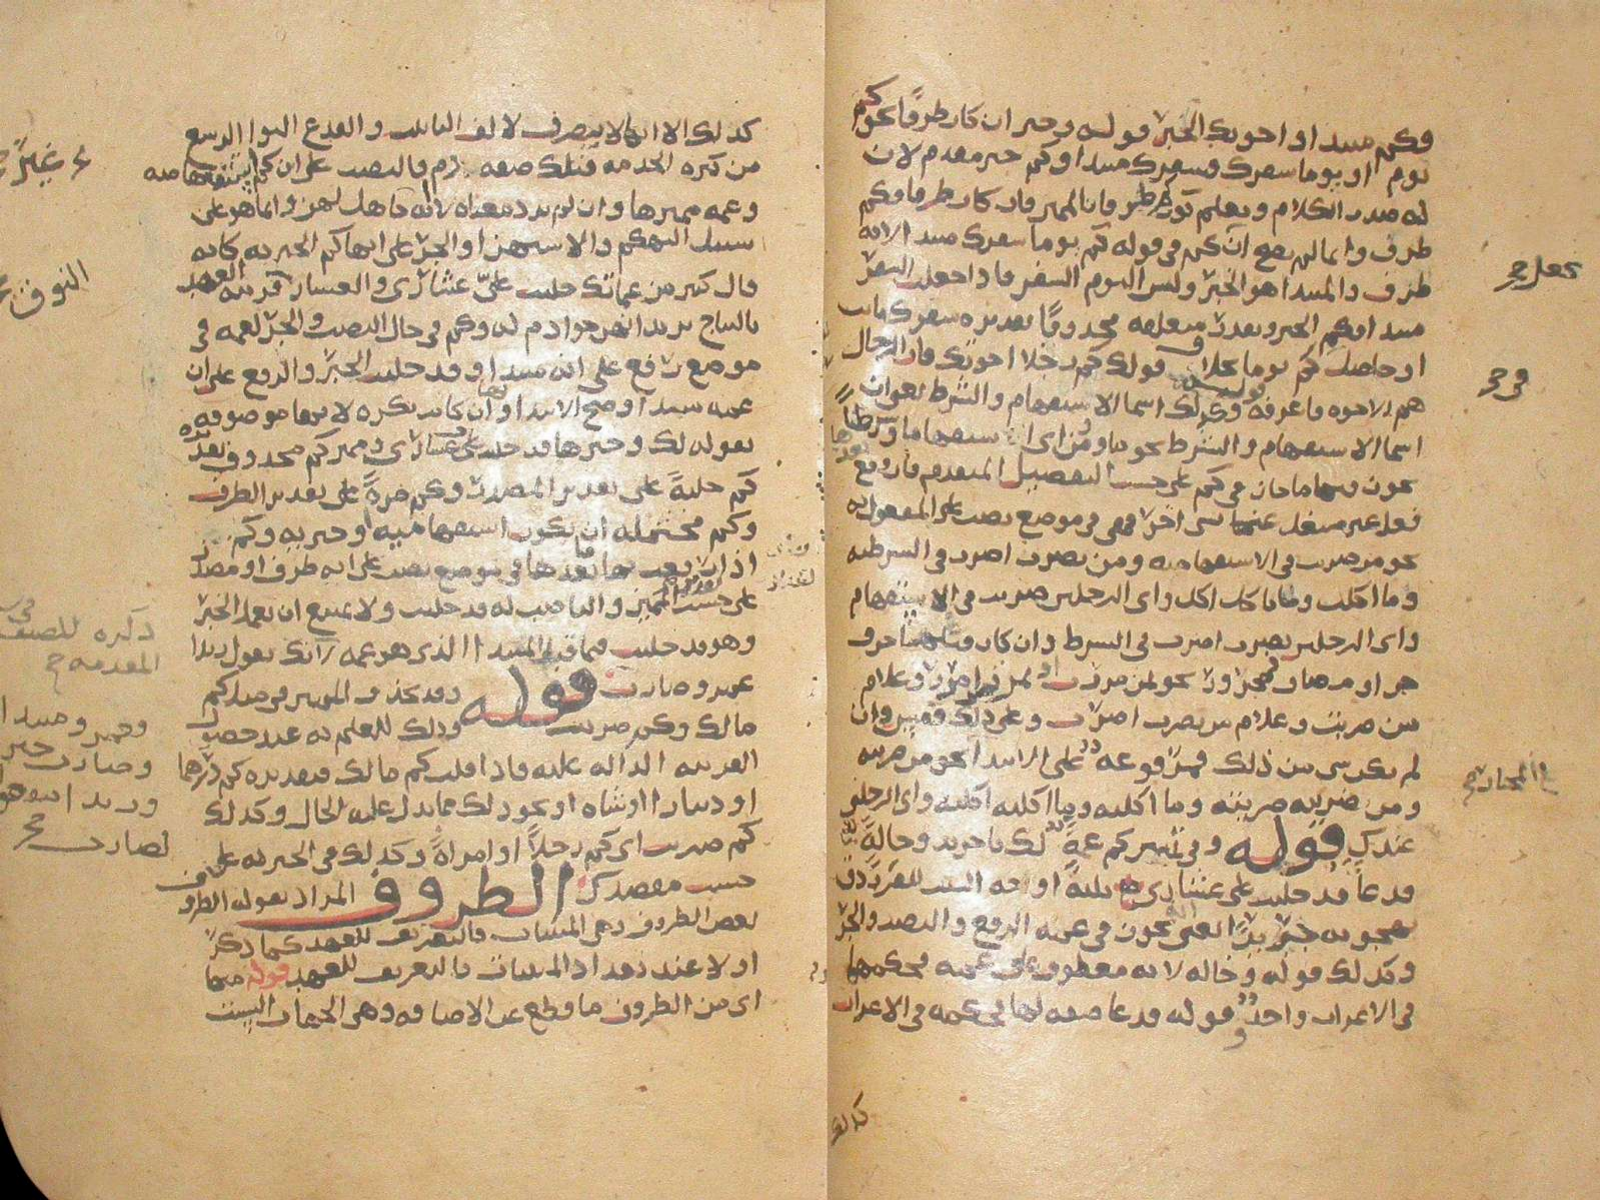 وكم مبتدا او اخوتك الخبر قوله وخبر ان كان ظرفا نحو كم
يوم او يوما سفرك فسفرك مبتدا وكم خبر مقدم لان
له صدر الكلام ويعلم كونه ظرفا بالمميز فان كان ظرفا فكم
ظرف وانما لم يصح ان يكون في قوله كم يوما سفرك مبتدا لانه
ظرف والمبتدا هو الخبر وليس اليوم السفر فاذا جعلت السفر
مبتدا وكم الخبر وبعدت متعلقه محذوفا تقديره سفرك كاين
او حاصل كم يوما بخلاف قولك كم رجلا اخوتك فان الرجال
هم الاخوه قوله وكذلك اسما الاستفهام والشرط يعني ان
اسما الاستفهام والشرط نحو من وما واى استفهاما وشرطا
يجوز فيها ما جاز في كم على حسب التفصيل المتقدم فان وقع بعدها
فعل غير مشتغل عنها بشى اخر فهي في موضع نصب على المفعول به
نحو من ضربت في الاستفهاميه ومن تضرب اضرب في الشرطيه
وما اكلت وما تاكل اكل واى الرجلين ضربت في الاستفهام
واى الرجلين تضرب اضرب في الشرط وان كان قبلها حرف
جر او مضاف فمجرور نحو بمن مررت وبمن تمرر امرر وغلام
من ضربت وغلام من تضرب اضرب وعلى ذلك فقس وان
لم يكن شى من ذلك فمرفوعه على الابتدا نحو من ضربته
ومن تضربه ضربته وما اكلته وما اكلته اكلته واى الرجلين
عندك قوله وفي تمييز كم عمة لك يا جرير وخالة
فدعا قد حلبت على عشارى ثلثة اوجه البيت للفرزدق
يهجو به جريرا يعنى يجوز في عمه الرفع والنصب والجر
وكذلك قوله وخاله لانه معطوف على عمه فحكمهما
في الاعراب واحد وقوله فدعا صفه لها فحكمه في الاعراب
كذلك
يجعل
كذلك الا انه لا ينصرف لالف التانيث والفدع التوا الرسغ
من كثره الخدمه فتلك صفه ذم فالنصب على ان كم استفهاميه
وعمه مميزها وان لم يرد معناه لانه جاهل بهن وانما هو على
سبيل التهكم والاستهزا والجر على انها كم الخبريه كانه
قال كثير من عماتك حلبت على عشارى والعشار قريبه العهد
بالنتاج يريد انهن خوادم له وكم في حال النصب والجر لعمه في
موضع رفع على انه مبتدا وقد حلبت الخبر والرفع على ان
عمه مبتدا وصح الابتدا بها وان كانت نكره لانها موصوفه
بقوله لك وخبرها قد حلبت على عشارى ومميز كم محذوف تقديره
كم حلبة على تقدير المصدر وكم مرة على تقدير الظرف
وكم محتمله ان تكون استفهاميه او خبريه وكم
اذا نصب ما بعدها في موضع نصب على انه ظرف او مصدر
على حسب تقدير المميز والناصب له قد حلبت ولا يمتنع ان يعمل الخبر
وهو قد حلبت فيما قبل المبتدا الذى هو عمه لانك تقول زيدا
عمرو ضارب قوله وقد يحذف المميز في مثل كم
مالك وكم ضربت وذلك للعلم به عند حصول
القرينه الداله عليه فاذا قلت كم مالك فتقديره كم درهما
او دينارا او شاه او نحو ذلك مما يدل عليه الحال وكذلك
كم ضربت اى كم رجلا او امراة وكذلك في الخبريه على
حسب مقصدك الظروف المراد بقوله الظروف
بعض الظروف وهي المبنيات فالتعريف للعهد كما ذكر
اولا عند تعداد المبنيات فالتعريف للعهد قوله منها
اى من الظروف ما قطع عن الاضافه وهي الجهات الست
ذكره المصنف في
المقدمه